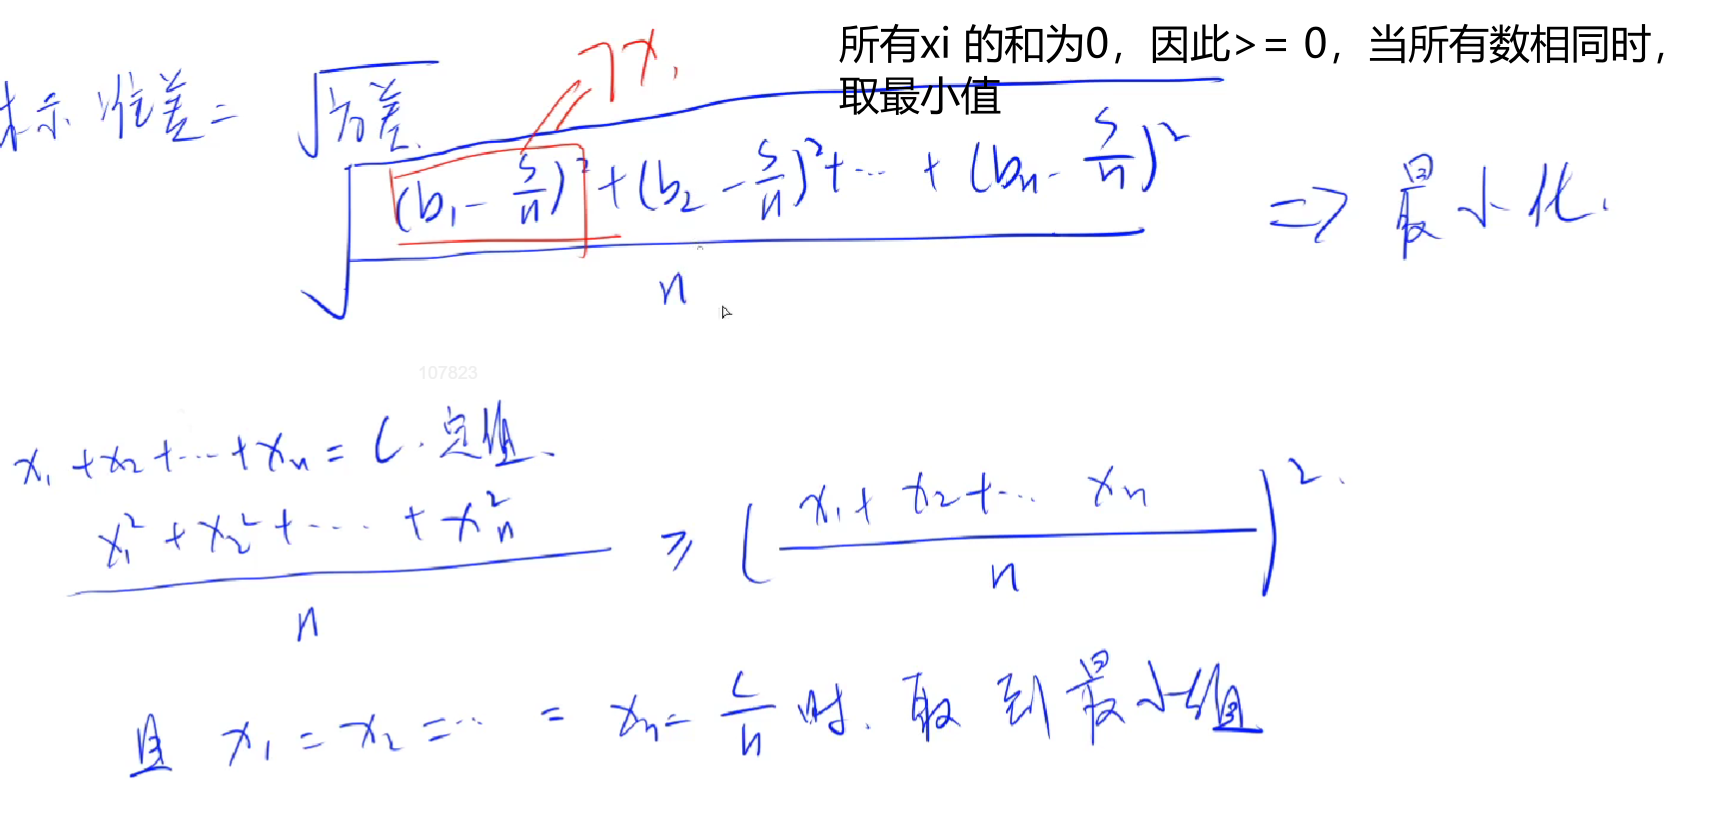 所有xi 的和为0，因此>= 0，当所有数相同时，
取最小值
x₁
标准差 = √方差.
√(((b₁ - S/n)² + (b₂ - S/n)² + ... + (bn - S/n)²) / n) => 最小化.
107823
x₁ + x₂ + ... + xn = C. 定值.
(x₁² + x₂² + ... + xn²) / n ≥ ((x₁ + x₂ + ... xn) / n)².
且 x₁ = x₂ = ... = xn = C/n 时. 取到最小值